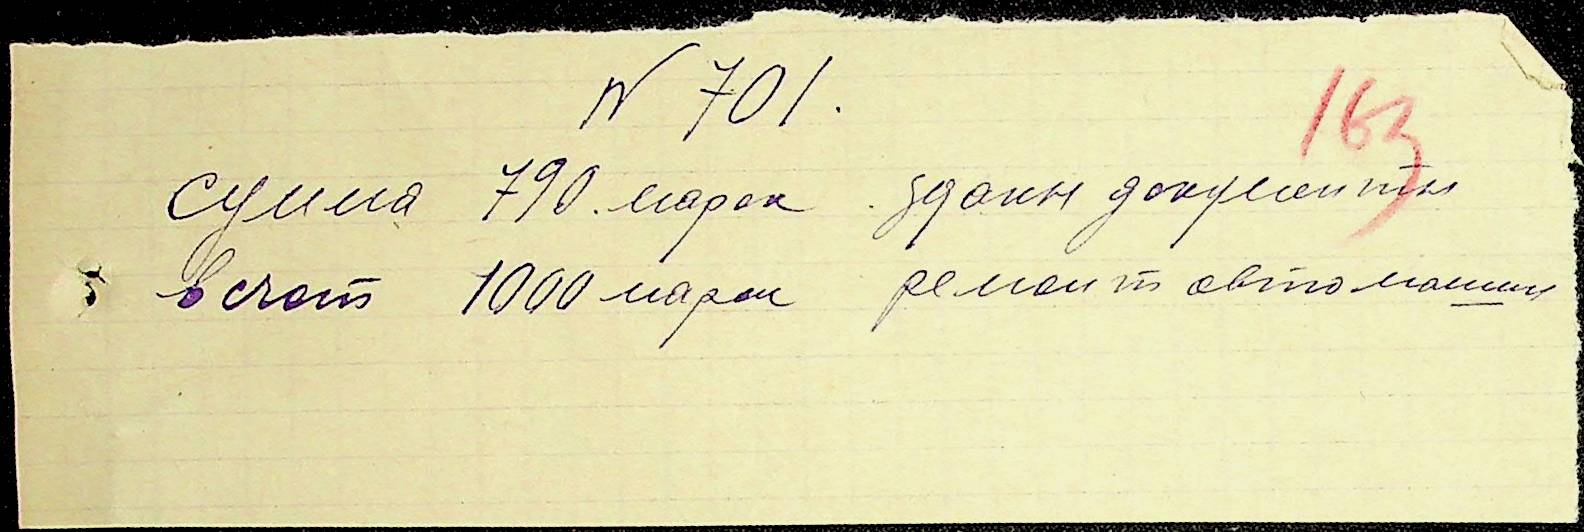 N 701.
163
сумма 790 марок зданы документы
в счет 1000 марок ремонт автомашин